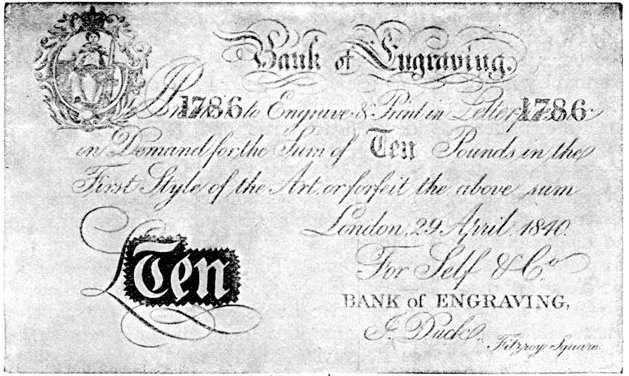 Bank of Engraving.
1786 to Engrave & Print in Letterpress 1786
on Demand for the Sum of Ten Pounds in the
First Style of the Art, or forfeit the above sum
London, 29 April, 1840.
For Self & Co.
£Ten
BANK of ENGRAVING,
J. Duck.
Fitzroy Square.